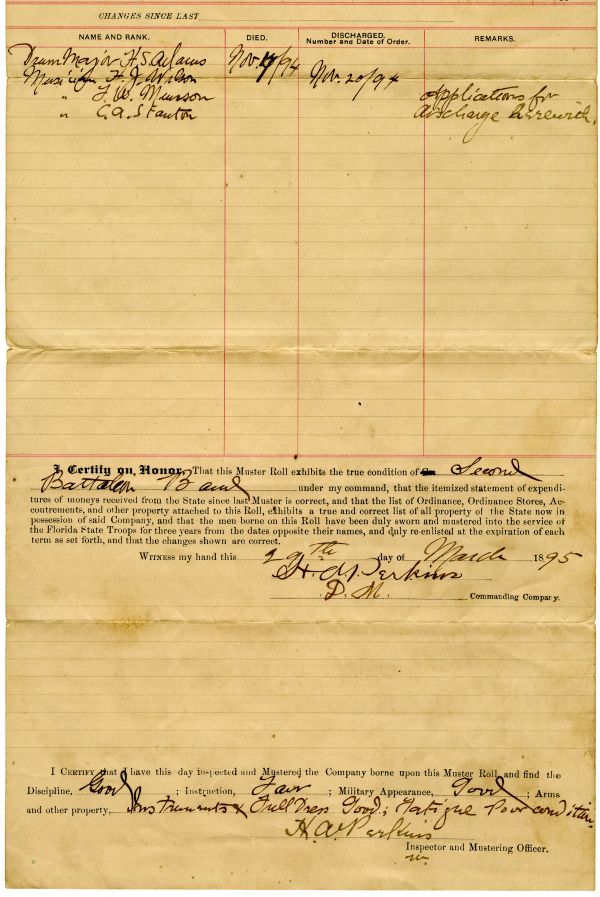 CHANGES SINCE LAST
NAME AND RANK. DIED. DISCHARGED. Number and Date of Order. REMARKS.
Drum Major H. S. Adams Nov 17/94
Musician H. J. Wilson Nov. 20/94
" F. W. Munson Applications for
" C. A. Stanton discharge herewith.
I Certify on Honor, That this Muster Roll exhibits the true condition of Second
Battalion Band under my command, that the itemized statement of expendi-
tures of moneys received from the State since last Muster is correct, and that the list of Ordinance, Ordinance Stores, Ac-
coutrements, and other property attached to this Roll, exhibits a true and correct list of all property of the State now in
possession of said Company, and that the men borne on this Roll have been duly sworn and mustered into the service of
the Florida State Troops for three years from the dates opposite their names, and duly re-enlisted at the expiration of each
term as set forth, and that the changes shown are correct.
WITNESS my hand this 29th day of March 1895
H. W. Perkins
D. M. Commanding Company.
I CERTIFY that I have this day inspected and Mustered the Company borne upon this Muster Roll and find the
Discipline, Good; Instruction, Fair; Military Appearance, Good; Arms
and other property, Instruments & Full Dress Good; Fatigue Poor condition.
H. W. Perkins
Inspector and Mustering Officer.